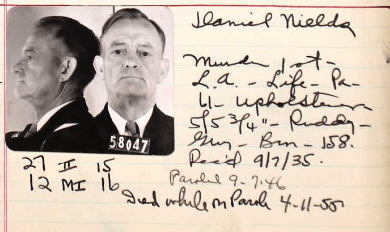 Daniel Nields
Murder 1st -
L.A. - Life - Pa -
61 - upholsterer
5/5 3/4" - Ruddy -
Gry - Brn - 158.
Rec'd 9/7/35.
58047
27 II 15
12 MI 16
Paroled 9-7-46
Died while on Parole 4-11-55